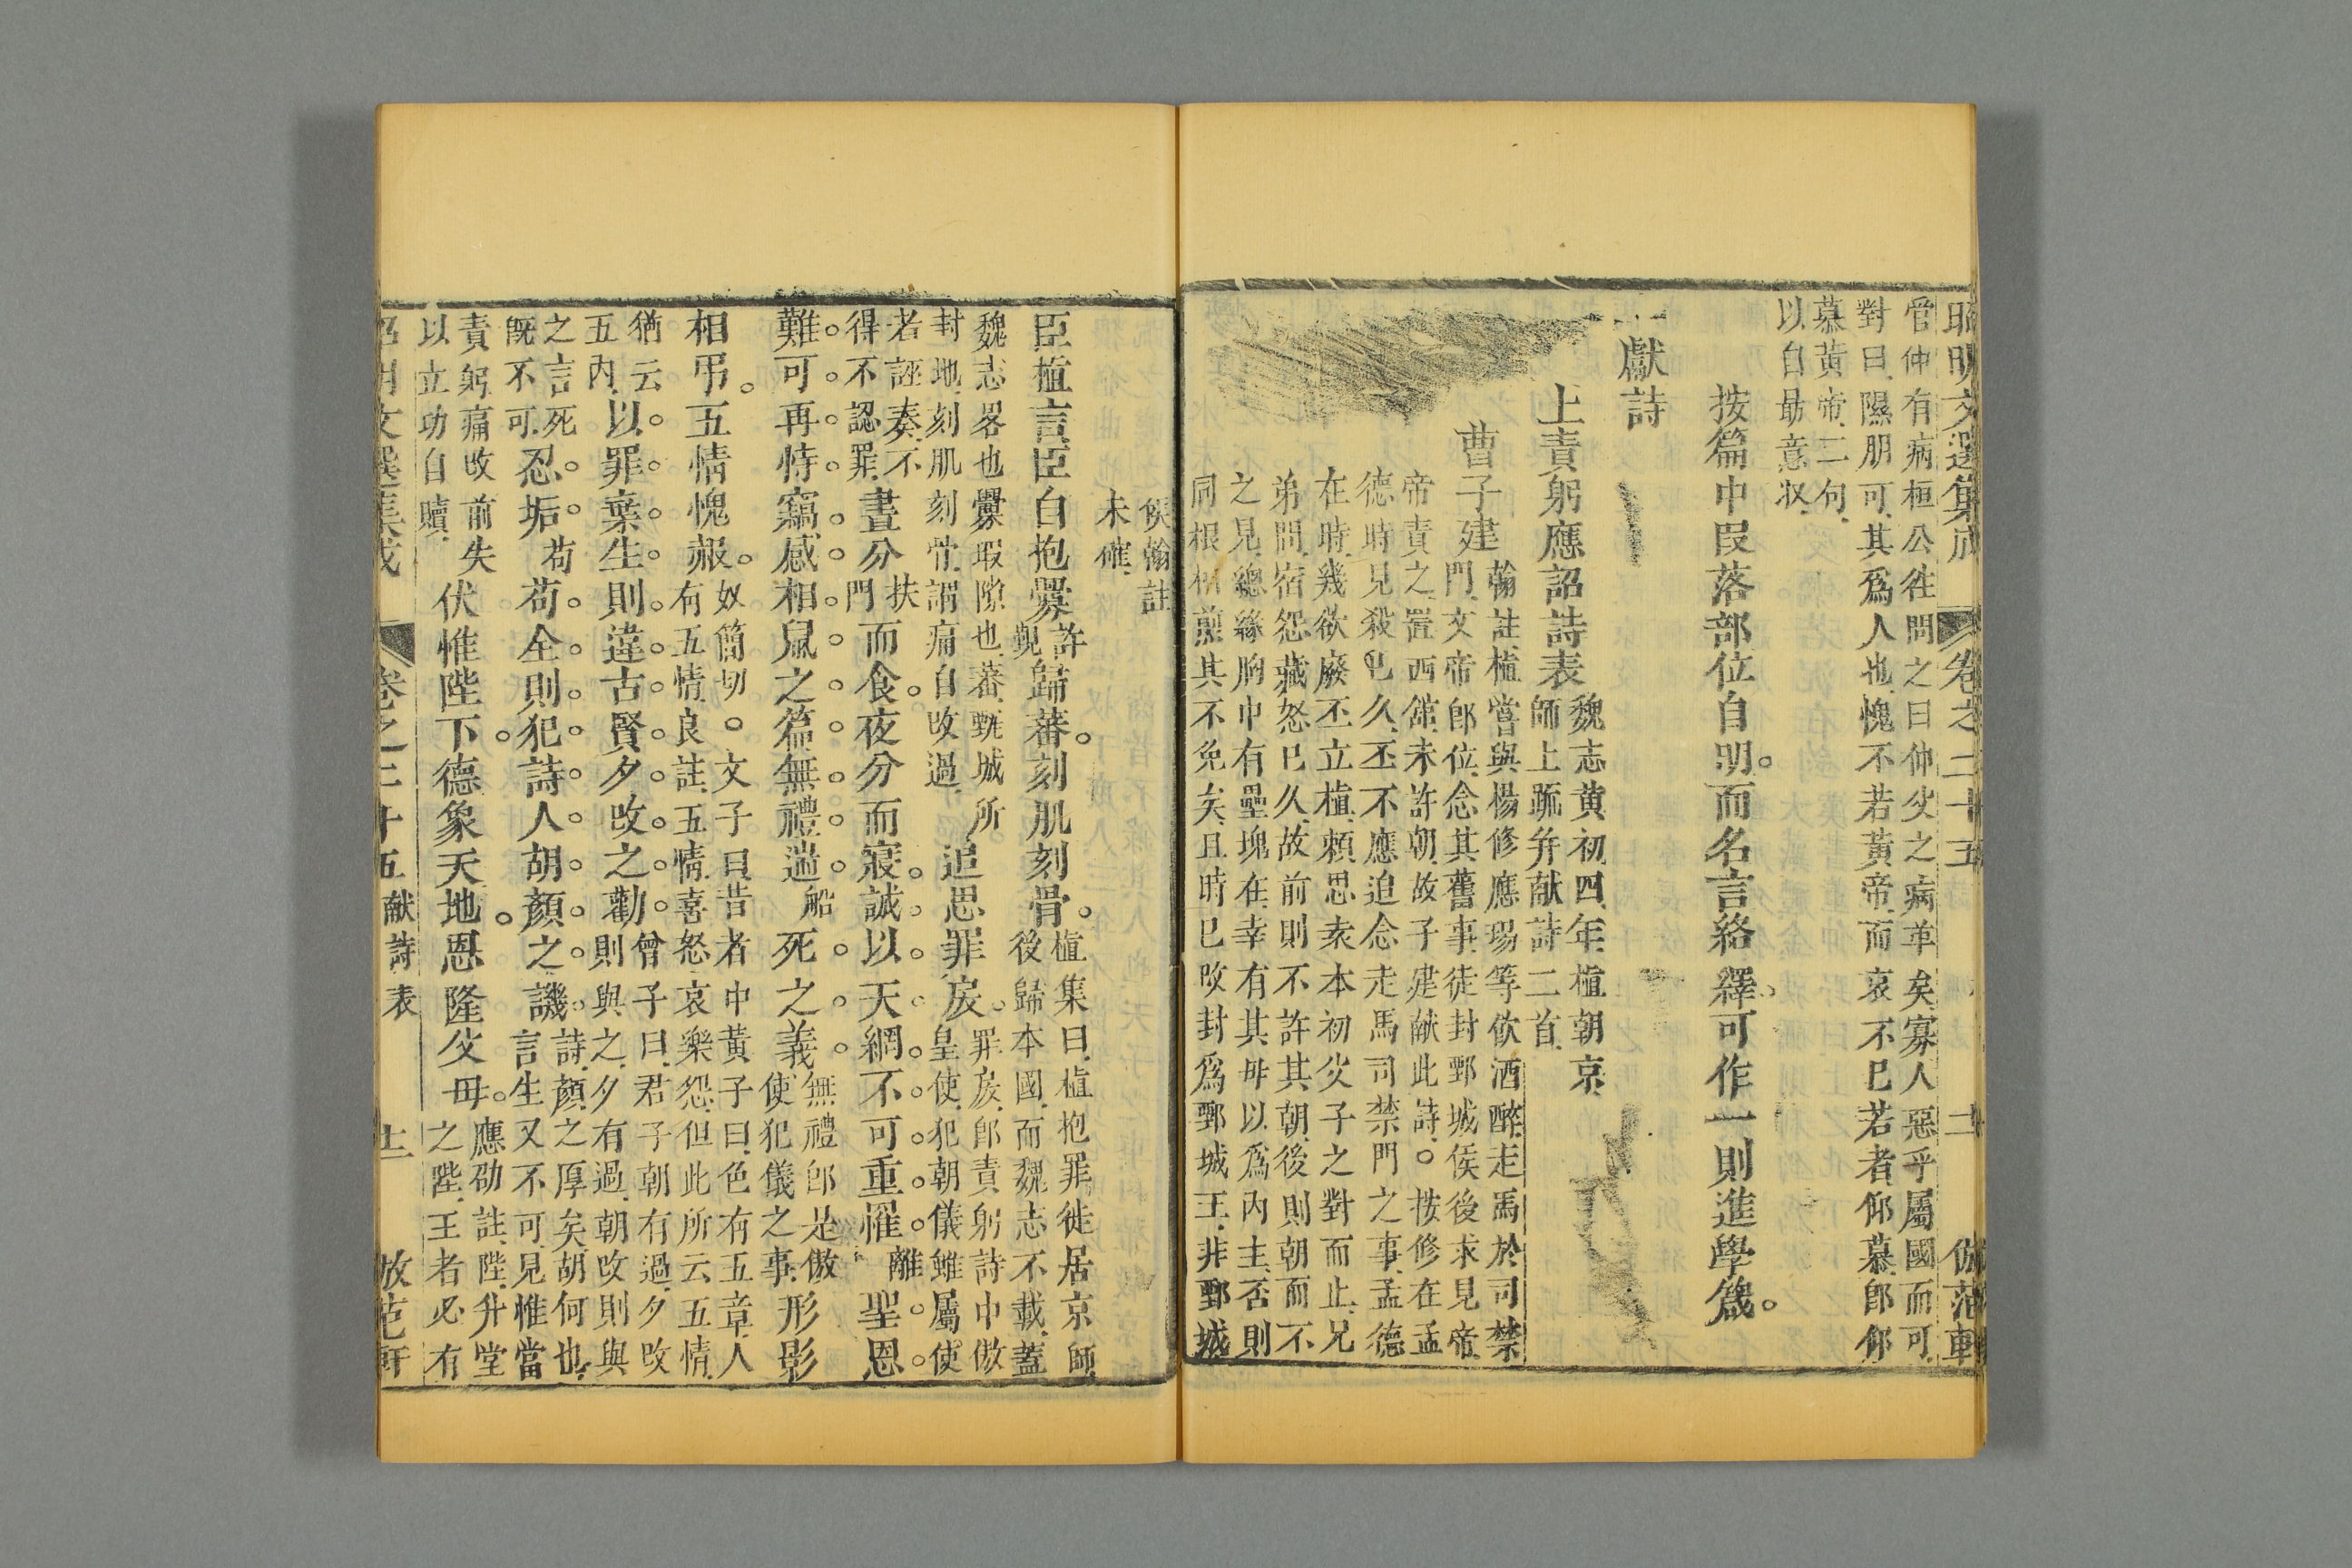 昭明文選集成 卷之二十五 二 倣范軒
管仲有病桓公徃問之曰仲父之病革矣寡人惡乎屬國而可
對曰隰朋可其爲人也愧不若黃帝而哀不已若者仰慕卽仰
慕黃帝二句
以自勗意収
按篇中段落部位自明而名言絡繹可作一則進學箴
獻詩
上責躬應詔詩表
魏志黄初四年植朝京
師上䟽并献詩二首
曹子建
翰註植嘗與楊修應瑒等飲酒醉走馬於司禁
門文帝卽位念其舊事徒封鄄城侯後求見帝
帝責之置西舘未許朝故子建献此詩○按修在孟
德時見殺已久丕不應追念走馬司禁門之事孟德
在時幾欲廢丕立植頼思袁本初父子之對而止兄
弟間宿怨藏怒已久故前則不許其朝後則朝而不
之見總緣胸中有壘塊在幸有其母以爲內主否則
同根相煎其不免矣且時已改封爲鄄城王非鄄城
侯翰註
未確
臣植言臣自抱釁
許
覲
歸蕃刻肌刻骨
植集曰植抱罪徙居京師
後歸本國而魏志不載蓋
魏志畧也釁瑕隙也蕃甄城所
封地刻肌刻骨謂痛自改過
追思罪戾
罪戾卽責躬詩中傲
皇使犯朝儀雖屬使
者誣奏不
得不認罪
晝分
扶
門
而食夜分而寢誠以天網不可重罹
離
聖恩
難可再恃竊感相鼠之篇無禮遄
船
死之義
無禮卽是傲
使犯儀之事
形影
相弔五情愧赧
奴簡切○文子曰昔者中黃子曰色有五章人
有五情良註五情喜怒哀樂怨但此所云五情
猶云
五內
以罪棄生則違古賢夕改之勸
曾子曰君子朝有過夕改
則與之夕有過朝改則與
之言死
既不可
忍垢
苟
苟全則犯詩人胡顏之譏
詩顏之厚矣胡何也
言生又不可見惟當
責躬痛改前失
以立功自贖
伏惟陛下德象天地恩隆父母
應劭註陛升堂
之陛王者必有
昭明文選集成 卷之二十五 献詩表 十二 倣范軒